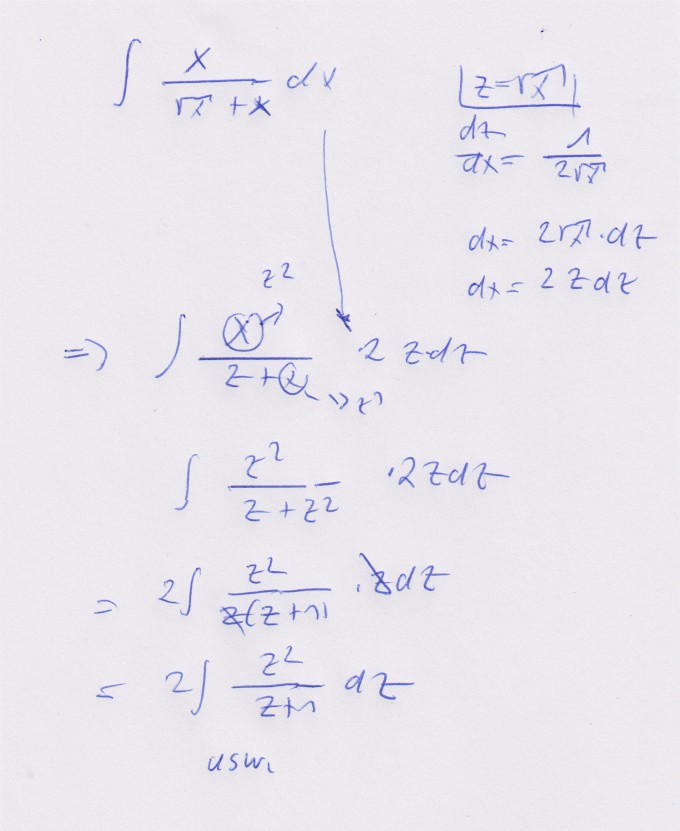 ∫ x/(√x + x) dx
z = √x
dz/dx = 1/(2√x)
dx = 2√x · dz
dx = 2 z dz
z²
=> ∫ x/(z + x) 2 z dz
=> z²
∫ z²/(z + z²) · 2 z dz
= 2∫ z²/(z(z + 1)) · z dz
= 2∫ z²/(z+1) dz
usw.